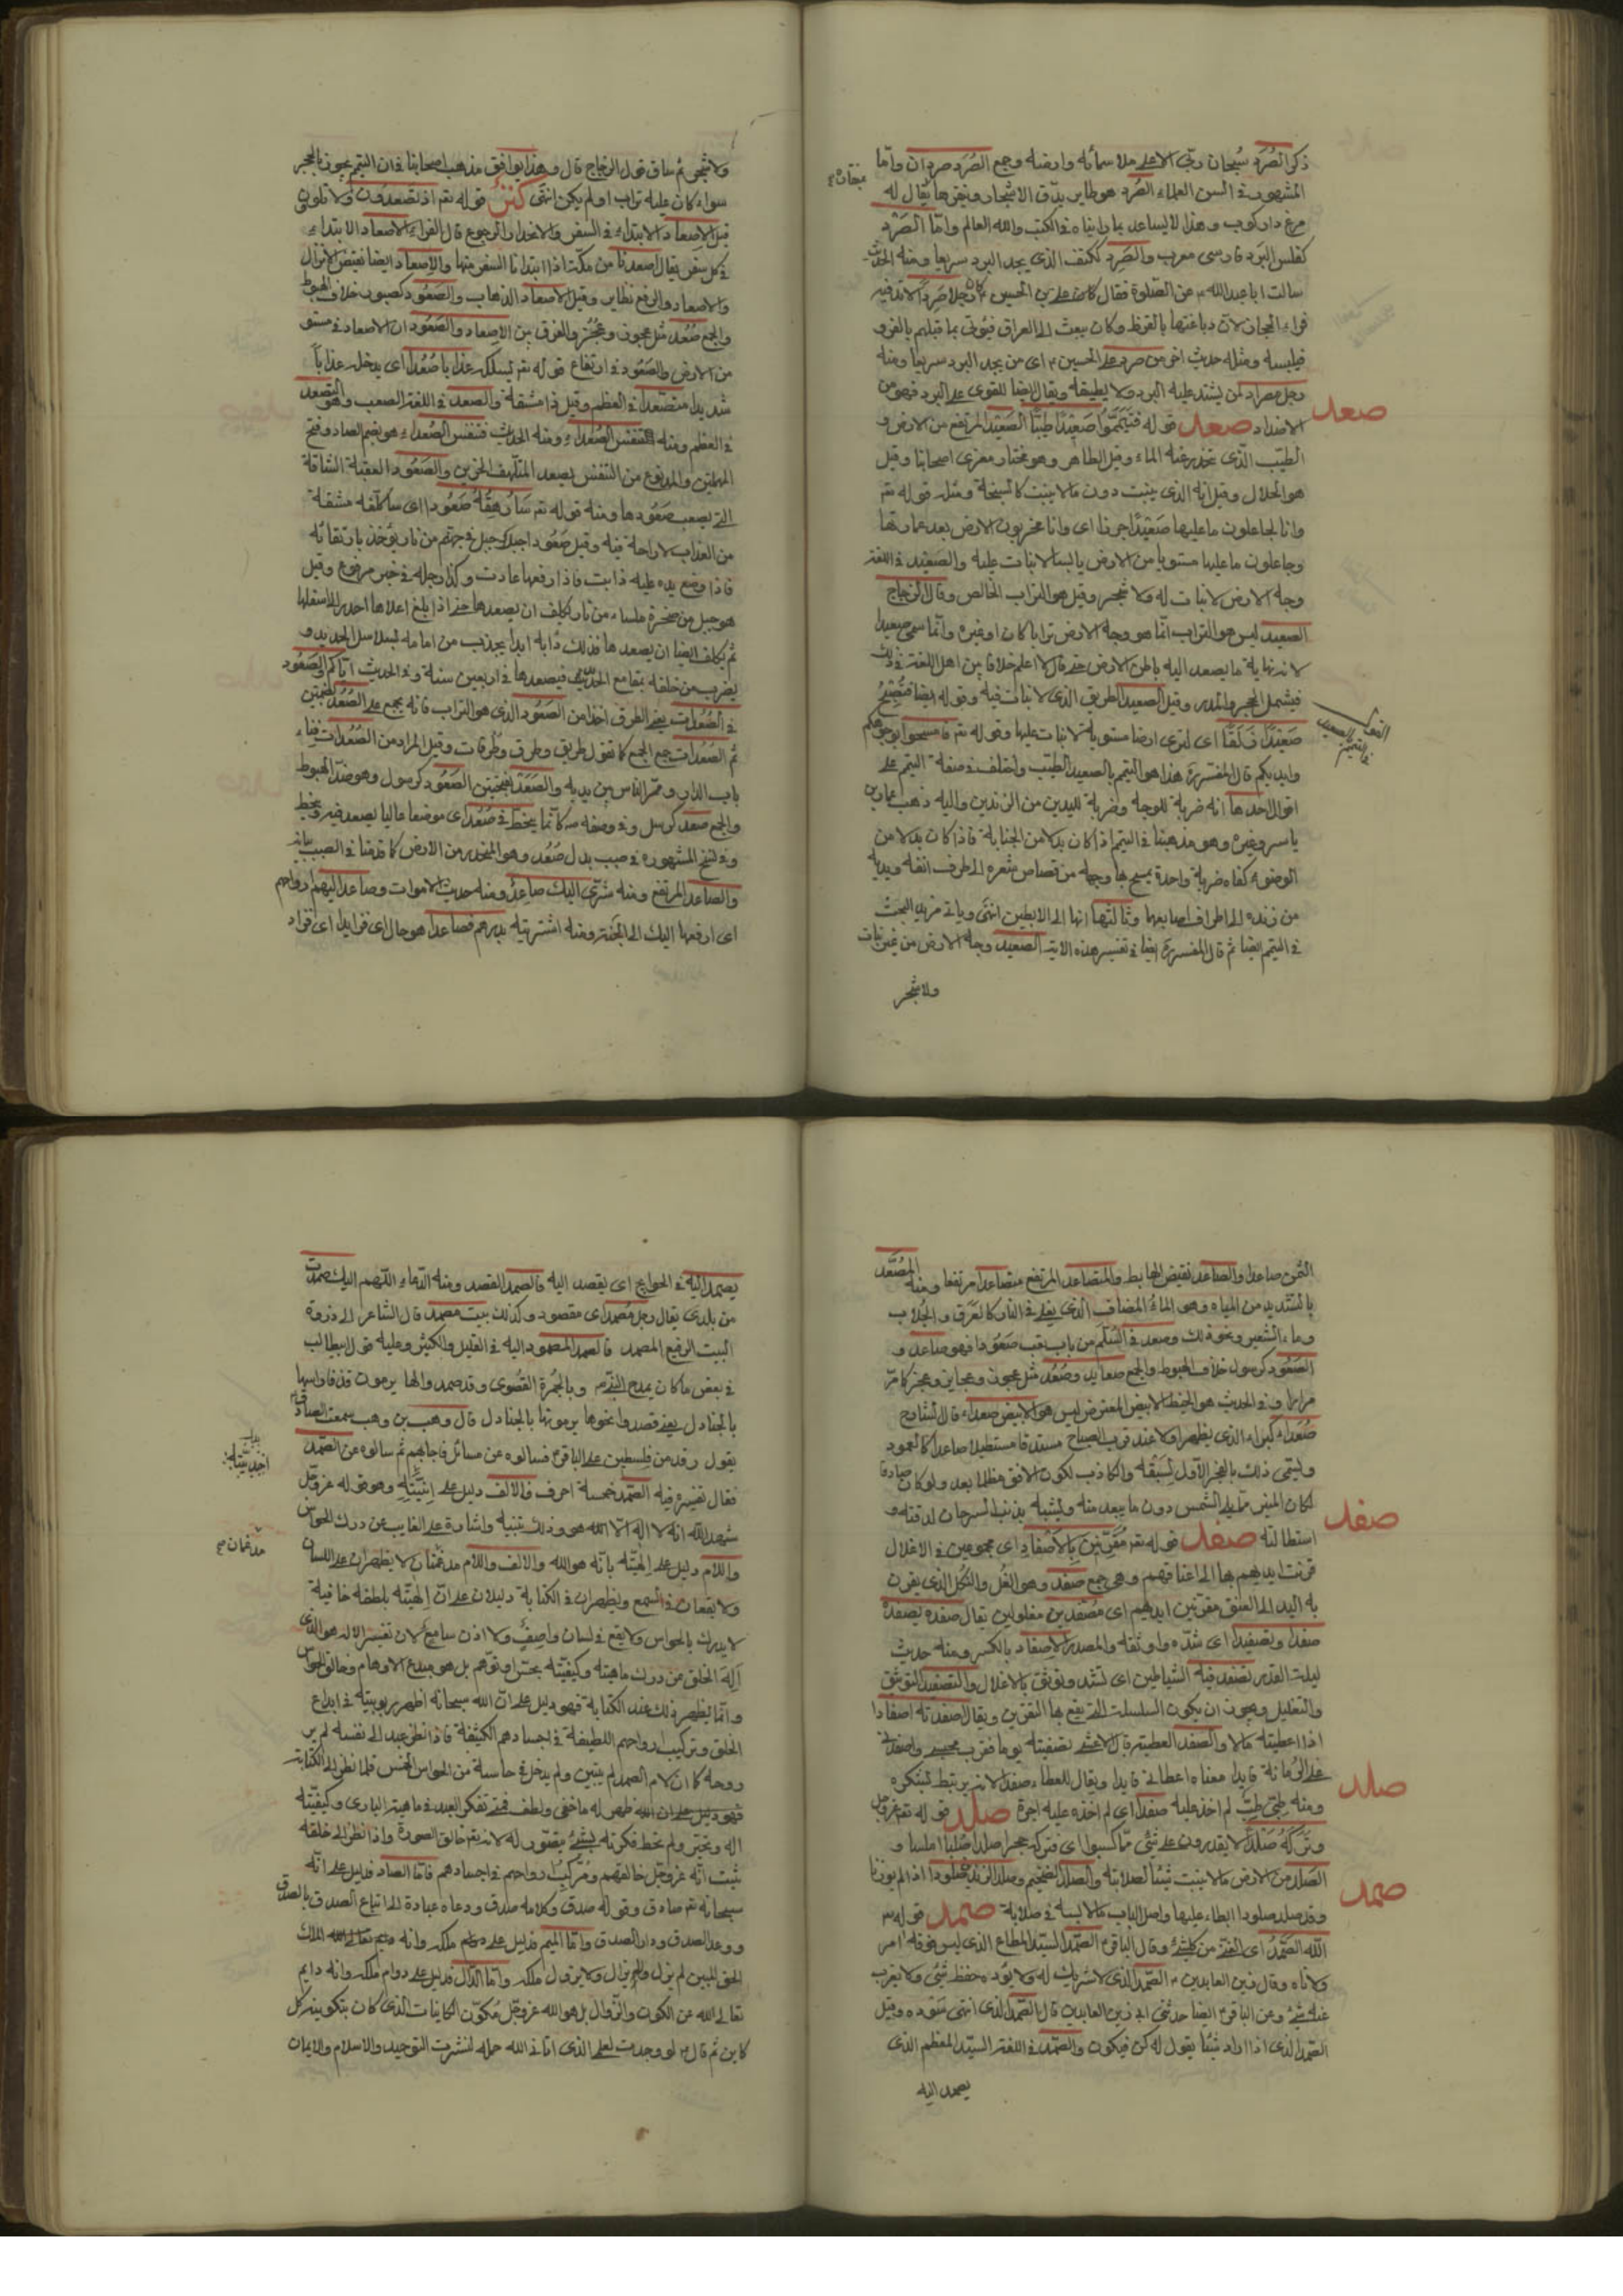 ذكر الصُرَد سُبحان ربّي الاعلى ملأ سمائه وارضه وجمع الصُرَد صردان وامّا
المشهور في السن العلماء الصُرَد هو طاير يدّق الاشجار وينقرها يقال له
مرغ داركوب وهذا لا يساعد ما رايناه في الكتب والله العالم وامّا الصَرْد
كفلس البرد فارسى معرب والصَرِد ككتف الذى يجد البرد سريعا ومنه الحديث
سالت ابا عبدالله ع عن الصلوة فقال كان على بن الحسين ع رجلا صَرِداً لا تدفيه
فراء الحجاز لان دباغتها بالقرظ وكان يبعث الى العراق فيؤتى بما قبلهم بالفرو
فيلبسه ومثله حديث اخر من صرد على الحسين ع اى من يجد البرد سريعا ومنه
رجل مصراد لمن يشتد عليه البرد ولا يطيقه ويقال ايضا للقوى على البرد فهو من
صعد
الاضداد صعد قوله فَتَيَمَّمُوا صَعِيْدًا طَيّبًا الصَعِيْد المرتفع من الارض و
الطيّب الّذى تحدر عنه الماء وقيل الطاهر وهو مختار مغزى اصحابنا وقيل
هو الحلال وقيل انه الذى ينبت دون ما لا ينبت كالسبخة ومثله قوله تم
وانا لجاعلون ما عليها صَعِيْدًا جرزا اى وانا مخربون الارض بعد عمارتها
وجاعلون ما عليها مستويا من الارض يابسا لا نبات عليه والصعيد في اللغة
وجه الارض لا نبات له ولا شجر وقيل هو التراب الخالص وقال الزجاج
الصعيد ليس هو التراب انّما هو وجه الارض ترابا كان او غيره وانّما سمى صعيدا
لانه نهاية ما يصعد اليه باطن الارض حتى قال لا اعلم خلافا بين اهل اللغة في ذلك
فيشمل الحجر والمدر وقيل الصعيد الطريق الذى لا نبات فيه وقوله ايضا فتُصْبِحَ
صَعِيْدًا زَلَقًا اى لنرى ارضا مستوية لا نبات عليها وقوله تم فامسحوا بوجوهكم
وايديكم قال المفسرون هذا هو التيمم بالصعيد الطيّب واختلف في صفة التيمم على
اقوال احدها انه ضربة للوجه وضربة لليدين من الزندين واليه ذهب عمار بن
ياسر وغيره وهو مذهبنا في التيمم اذا كان بدلا من الجنابة فاذا كان بدلا من
الوضوء كفاه ضربة واحدة يمسح بها وجهه من قصاص شعره الى طرف انفه ويديه
من زنده الى اطراف اصابعها وثالثها انها الى الابطين انتهى وياتى مزيد البحث
في التيمم ايضا ثم قال المفسرون ايضا في تفسير هذه الاية الصعيد وجه الارض من غير نبات
ولا شجر
ولا شجر ثم ساق قول الزجاج قال وهذا يوافق مذهب اصحابنا في ان التيمم يجوز بالحجر
سواء كان عليه تراب او لم يكن انتهى قوله تم اذ تصعدون ولا تلوون
قيل الاصعاد الابتداء في السفر والانحدار الرجوع قال الفراء الاصعاد الابتداء
في كل سفر يقال اصعدنا من مكة اذا ابتدانا السفر منها والاصعاد ايضا نقيض الانزال
والاصعاد والرفع نظاير وقيل الاصعاد الذهاب والصَعُود كصبور خلاف الهبوط
والجمع صُعُد مثل عجوز وعُجُز والفرق بين الاصعاد والصَعُود ان الاصعاد في مستو
من الارض والصَعُود في ارتفاع قوله تم يَسلكه عذابا صَعَدا اى يدخله عذاباً
شديدا متصعّدا في العظم وقيل ذا مشقة والصعد في اللغة الصعب وهو التصعّد
في العظم ومنه التنفس الصُعَداء ومنه الحديث فتنفس الصُعَداء هو بضم الصاد وفتح
المهملتين والمد نوع من التنفس يصعد المتلهف الحزين والصَعُود العقبة الشاقة
التي يصعب صَعُودها ومنه قوله تم سَاُرْهِقُهُ صَعُودا اى ساكلفه مشقة
من العذاب لا راحة فيه وقيل صَعُودا جبل في جهنم من نار يؤخذ بارتقائه
فاذا وضع يده عليه ذابت فاذا رفعها عادت وكذا رجله في خبر مرفوع وقيل
هو جبل من صخرة ملساء من نار يكلف ان يصعدها حتى اذا بلغ اعلاها احدر الى اسفلها
ثم يكلف ايضا ان يصعدها فذلك دابه ابدا يجذب من امامه بسلاسل الحديد و
يضرب من خلفه بمقامع الحديد فيصعدها في اربعين سنة وفي الحديث اياكم والصَعُود
في الصُعُدات يعنى الطرق اخذا من الصَعُود الذى هو التراب فانه يجمع على الصُعُد بضمتين
ثم الصُعُدات جمع الجمع كما تقول طريق وطرق وطُرقات وقيل المراد من الصُعُدات فناء
باب الدار وممر الناس بين يديه والصَعَد بفتحتين الصَعُود كرسول وهو ضد الهبوط
والجمع صُعُد كرسل وفي وصفه ص كانّما ينحطّ في صُعُد اى موضعا عاليا يصعد فيه وينحط
وفي نسخ المشهوره في صبب بدل صُعُد وهو المنحدر من الارض كما قدمنا في الصبب بيانه
والصاعد المرتفع ومنه شرّى اليك صاعِدٌ ومنه حديث الاموات وصاعدا اليهم ارواحهم
اى ارفعها اليك الى الجنة ومنه اشتريته بدرهم فصاعدا هو حال اى فزايدا اى فزاد
الثمن صاعدا والصاعد نقيض الهابط والمتصاعد المرتفع متصاعدا مرتفعا ومنه المُصَعَّد
بالتشديد من المياه وهو الماء المضاف الذى يغلى في النار كالعَرَق والجُلاب
وماء الشعير ونحو ذلك وصعد في السُلّم من باب تعب صَعُودا فهو صاعد و
الصَعُود كرسول خلاف الهبوط والجمع صعايد وصُعُد مثل عجوز وعجايز وعجز كما مرّ
مرارا وفي الحديث هو الخيط الابيض المعترض ليس هو الابيض صعداء قال الشارح
صُعَداء كبراء الذى يظهر اولا عند قرب الصباح مستدقا مستطيلا صاعدا كالعمود
ويسمى ذلك بالفجر الاول لسَبْقه والكاذب لكون الافق مظلما بعد ولو كان صادقا
لكان المنير مما يلى الشمس دون ما يبعد منه ويشبه بذنب السرحان لدقته و
صفد
استطالته صفد قوله تم مُقَرَّنِيْنَ بِالاَصْفَادِ اى مجموعين في الاغلال
قرنت ايديهم بها الى اعناقهم وهى جمع صَفَد وهو الغل والنُكل الذى يقرن
به اليد الى العنق مقرنين ايديهم اى مُصْفَدين مغلولين يقال صفده يصفده
صفدا وتصفيدا اى شدّه واوثقه والمصدر الاصفاد بالكسر ومنه حديث
ليلة القدر يصفد فيه الشياطين اى تشد وتوثق بالاغلال والتصفيد التوثيق
والتغليل ويجوز ان يكون السلسلة التي يقع بها التقرين ويقال اصفدته اصفادا
اذا اعطيته مالا والصَفَد العطية قال الاعشى تضيفته يوما فقرب مجلسى واصفدنى
على الزمانة قايدا معناه اعطانى قايدا ويقال للعطاء صفد لانه يرتبط بشكره
صلد
ومنه طِبّى طِبٌّ لم اخذ عليه صفدا اى لم اخذ عليه اجرة صلد قوله تم عز وجل
وتَرَكَهُ صَلْدًا لا يقدرون على شئى ممّا كسبوا اى فتركه حجرا صلدا صُلبا املسا و
الصَلْد من الارض ما لا ينبت شيئا لصلابته والصلد الضخيم وصلد الزند صلودا اذا لم يور نارا
صمد
وقد صلد صلودا ابطاء عليها واصل الباب ملابسة في صلابة صمد قوله تم
اللّه الصَّمَدُ اى الغنىّ من كل شئ وقال الباقر ع الصّمد السيّد المطاع الذى ليس فوقه امر
ولا ناه وقال زين العابدين ع الصّمد الذى لا شريك له ولا يؤده حفظ شئى ولا يعزب
عنه شئ وعن الباقر ع ايضا حدثنى ابى زين العابدين قال الصّمد الذى انتهى سُؤدده وقيل
الصّمد الذى اذا اراد شيئا يقول له كن فيكون والصّمد في اللغة السيّد المعظم الذى
يصمد اليه
يصمد اليه في الحوايج اى يقصد اليه فالصمد القصد ومنه الدّعاء اللّهم اليك صمدت
من بلدى يقال رجل مُصمد اى مقصود وكذلك بيت مصمد قال الشاعر الى ذروة
البيت الرفيع المصمد فالصمد المصمود اليه في القليل والكثير وعليه قول ابيطالب
في بعض ما كان يمدح النبي ص وبالجُمْرَة القُصْوى وقد صمد والها يرمون قذفا راسها
بالجنادل يعنى قصدوا نحوها يرمونها بالجنادل قال وهب بن وهب سمعت الصادق ع
يقول وفد من فلسطين على الباقر ع فسالوه عن مسائل فاجابهم ثم سالوه عن الصَّمَد
فقال تفسيره فيه الصّمد خمسة احرف فالالف دليل على اِنّيّتِهِ وهو قوله عز وجل
شهد الله انه لا اله الا الله هو وذلك تنبيه واشارة على الغايب عن درك الحواس
واللام دليل على الهيّته بانّه هو الله والالف واللام مدغمان لا يظهران على اللسان
مدغمان
ولا يقعان في السمع ويظهران في الكتابة دليلان على انّ الهيّته بلطفه خافية
لا يدرك بالحواس ولا يقع في لسان واصِفٍ ولا اذن سامعٍ لان تفسير الاله هو الذى
اَلِهَ الخلق من درك ماهيته وكيفيّته بحسّ او توهّم بل هو مبدع الاوهام وخالق الحواس
وانما يظهر ذلك عند الكتابة فهو دليل على انّ الله سبحانه اظهر ربوبيته في ابداع
الخلق وتركيب ارواحهم اللطيفة في اجسادهم الكثيفة فاذا نظر عبد الى نفسه لم ير
روحه كما ان لام الصمد لم يتبين ولم يدخل في حاسة من الحواس الخمس فلما نظر الى الكتابة
ظهر له ما خفى ولطف فمتى تفكر العبد في ماهية البارى وكيفيّته
اله وتحيّر ولم تحط فكرته بشئ يتصوّر له لانه تم خالق الصورة واذا نظر الى خلقه
ثبت انّه عز وجل خالقهم ومُرَكّب ارواحهم في اجسادهم فامّا الصاد فدليل على انّه
سبحانه تم صادق وقوله صدق وكلامه صدق ودعاه عباده الى اتباع الصدق بالصدق
ووعد الصدق ودار الصدق وامّا الميم فدليل على ملكه وانه الملك
الحق المبين لم يزل ولا يزال ولا يزول ملكه وامّا الدّال فدليل على دوام ملكه وانه دايم
تعالى الله عن الكون والزوال بل هو الله عز وجل مُكوّن الكاينات الّذى كان بتكوينه كل
كاين ثم قال ع لو وجدت لعلمى الذى اتانى الله حمله لنشرت التوحيد والاسلام والايمان